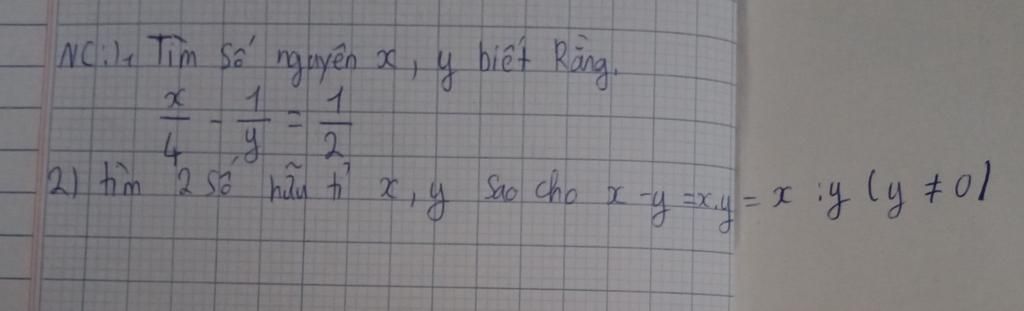 NC:)1 Tìm số nguyên x, y biết Rằng.
x/4 - 1/y = 1/2
2) tìm 2 số hữu tỉ x, y sao cho x - y = x.y = x : y (y ≠ 0)